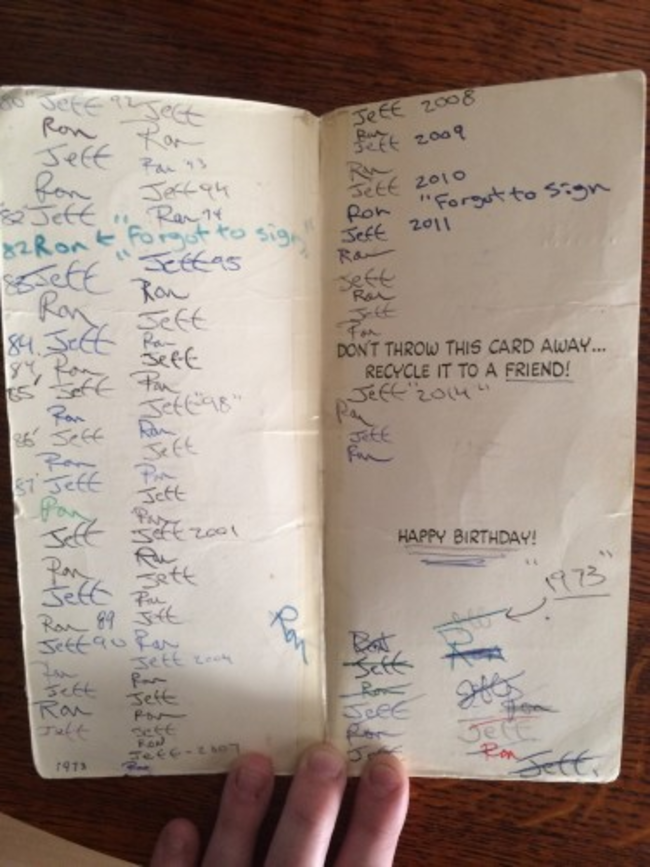 80 Jeff 92 Jeff
Ron Ron
Jeff Ron '93
Ron Jeff 94
'82 Jeff Ron 94
82 Ron ← "Forgot to sign"
83 Jeff Jeff 95
Ron Ron
Jeff
84. Jeff Ron
84 Ron Jeff
85' Jeff Ron
Jeff "98"
Ron Ron
86' Jeff Jeff
Ron Ron
87' Jeff Jeff
Ron Ron
Jeff Jeff 2001
Ron Ron
Jeff Jeff
Ron 89 Ron
Jeff 90 Jeff
Ron Ron
Jeff Jeff 2004
Ron Ron
Jeff Jeff
Ron
Jeff
Ron
Jeff - 2007
1973 Ron
Ron
Jeff 2008
Ron
Jeff 2009
Ron
Jeff 2010
Ron "Forgot to sign
Jeff 2011
Ron
Jeff
Ron
Jeff
Ron
DON'T THROW THIS CARD AWAY...
RECYCLE IT TO A FRIEND!
Jeff "2014"
Ron
Jeff
Ron
HAPPY BIRTHDAY!
"1973"
Ron Jeff
Jeff Ron
Ron Jeff
Jeff Ron
Ron Jeff
Jeff Ron
Jeff.